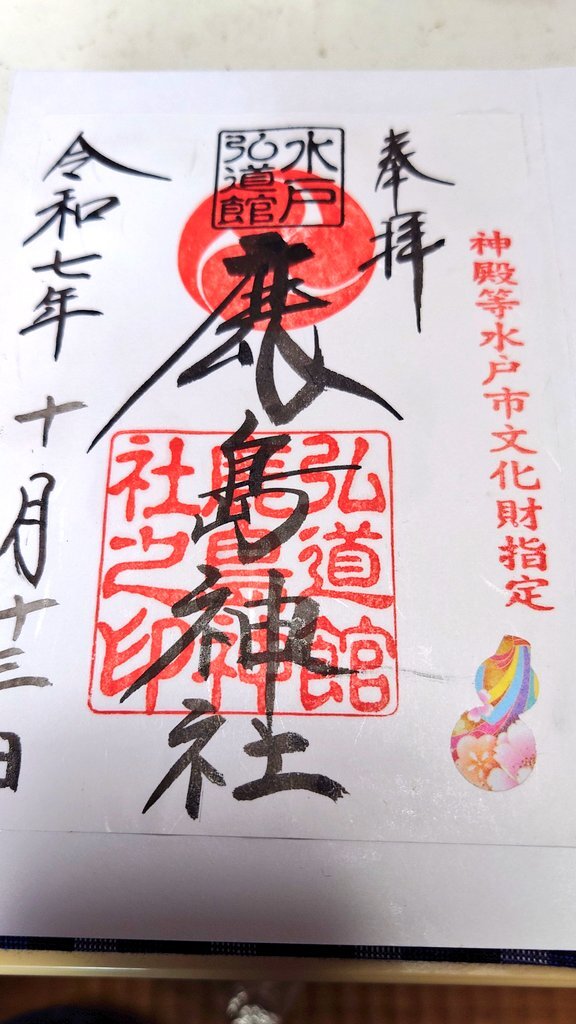 神殿等水戸市文化財指定
奉拝
水戸
弘道館
鹿島神社
弘道館
鹿島神
社之印
令和七年
十月十三日